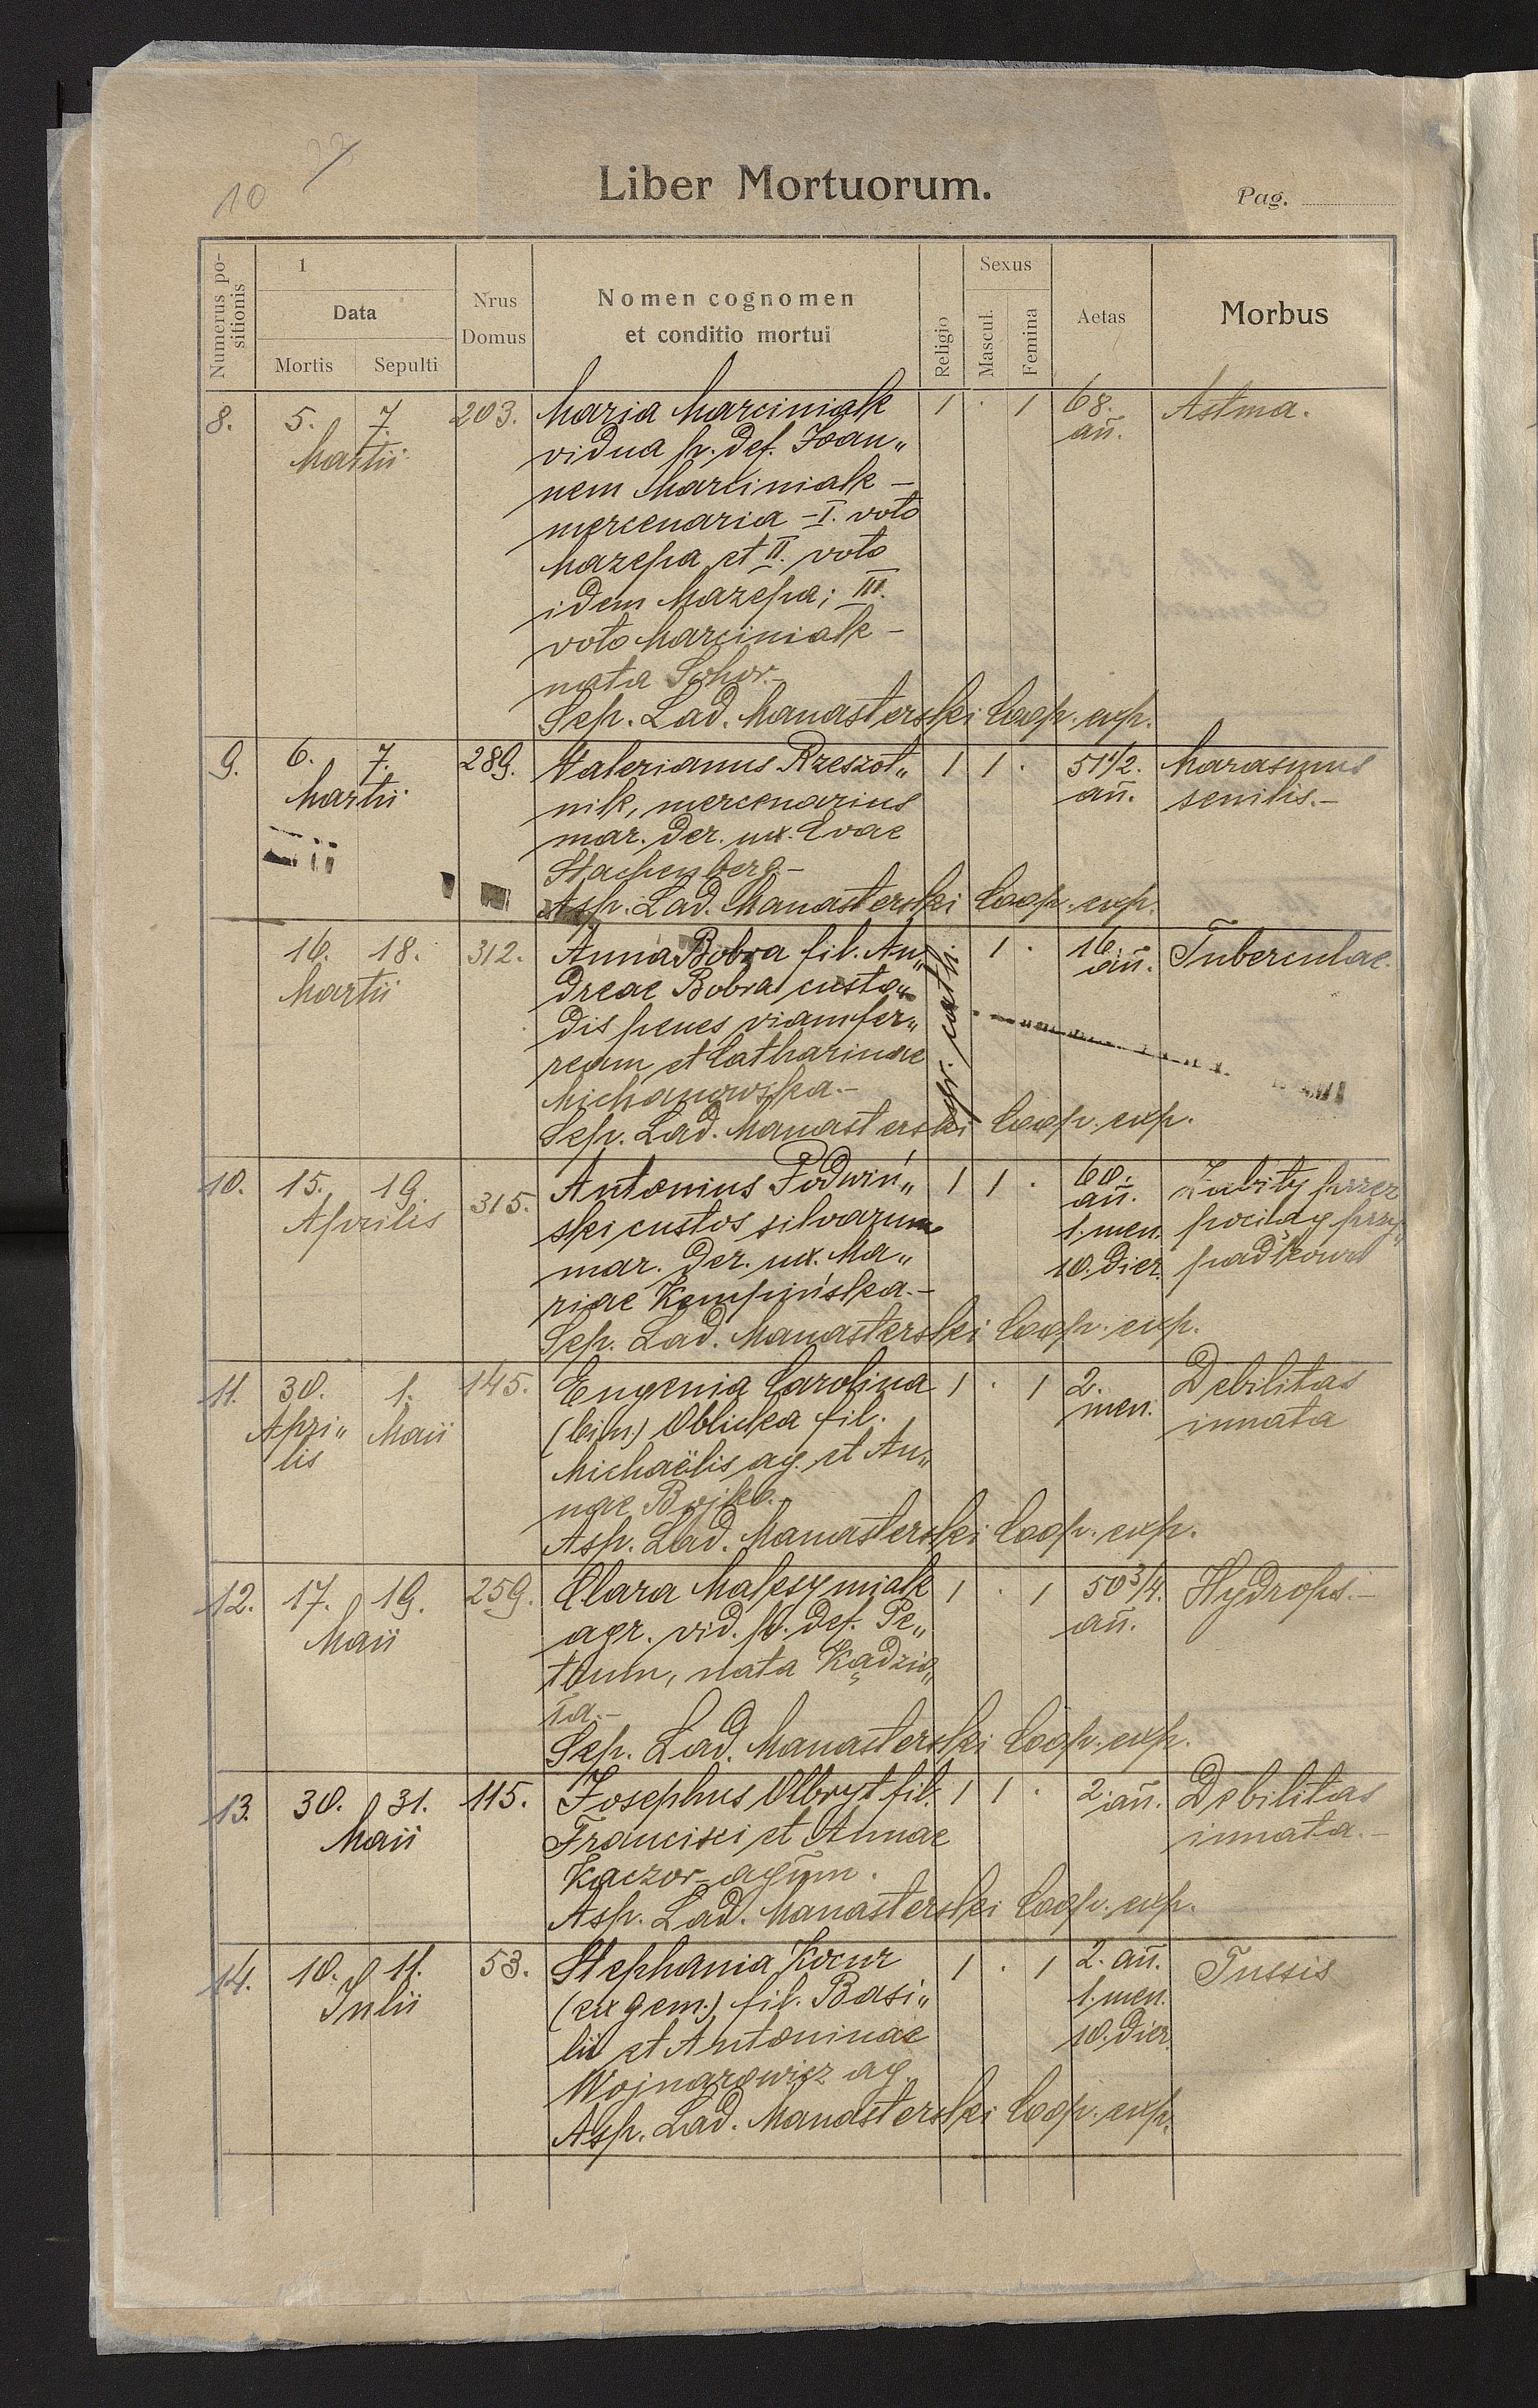 10
Liber Mortuorum.
Pag.
Numerus positionis
1
Data
Mortis
Sepulti
Nrus
Domus
Nomen cognomen
et conditio mortui
Religio
Sexus
Mascul.
Femina
Aetas
Morbus
8. 5. 7. 203. Maria Marciniak 1 · 1 68. Astma.
Martii vidua p. def. Joan„ añ.
nem Marciniak –
mercenaria – I. voto
Mazepa et II. voto
idem Mazepa; III.
voto Marciniak –
nata
Sep. Lad. Manasterski Coop. exp.
9. 6. 7. 289. Valerianus Rzeszot„ 1 1 · 51 1/2. Marasmus
Martii nik, mercenarius añ. senilis.–
mar. der. ux. Evae
Stachenberg –
Asp. Lad. Manasterski Coop. exp.
16. 18. 312. Anna Bobra fil. An„ gr. cath. 1 · 16. Tuberculae.
Martii dreae Bobra custo„ añ.
dis penes viam fer„
ream et Catharinae
Michanowska.–
Sep. Lad. Manasterski Coop. exp.
10. 15. 19. 315. Antonius Podwiń„ 1 1 · 60. Zabity przez
Aprilis ski custos silvarum añ. 1. men. pociąg przy„
mar. der. ux. Ma„ 10. dier. padkowo
riae Kempińska.–
Sep. Lad. Manasterski Coop. exp.
11. 30. 1. 145. Eugenia Carolina 1 · 1 2. Debilitas
Apri„ Maii (bin.) Oblicka fil. men. innata
lis Michaëlis ag. et An„
nae Bojko.
Asp. Lad. Manasterski Coop. exp.
12. 17. 19. 259. Clara Maksymiak 1 · 1 50 3/4. Hydrops.–
Maii agr. vid. p. def. Pe„ añ.
trum, nata Kądzio„
ła.–
Sep. Lad. Manasterski Coop. exp.
13. 30. 31. 115. Josephus Olbryt fil. 1 1 · 2. añ. Debilitas
Maii Francisci et Annae innata.–
Kaczor – agrum.
Asp. Lad. Manasterski Coop. exp.
14. 10. 11. 53. Stephania Kocur 1 · 1 2. añ. Tussis
Julii (ex gem.) fil. Basi„ 1. men.
lii et Antoninae 10. dier.
Wojnarowicz ag.
Asp. Lad. Manasterski Coop. exp.